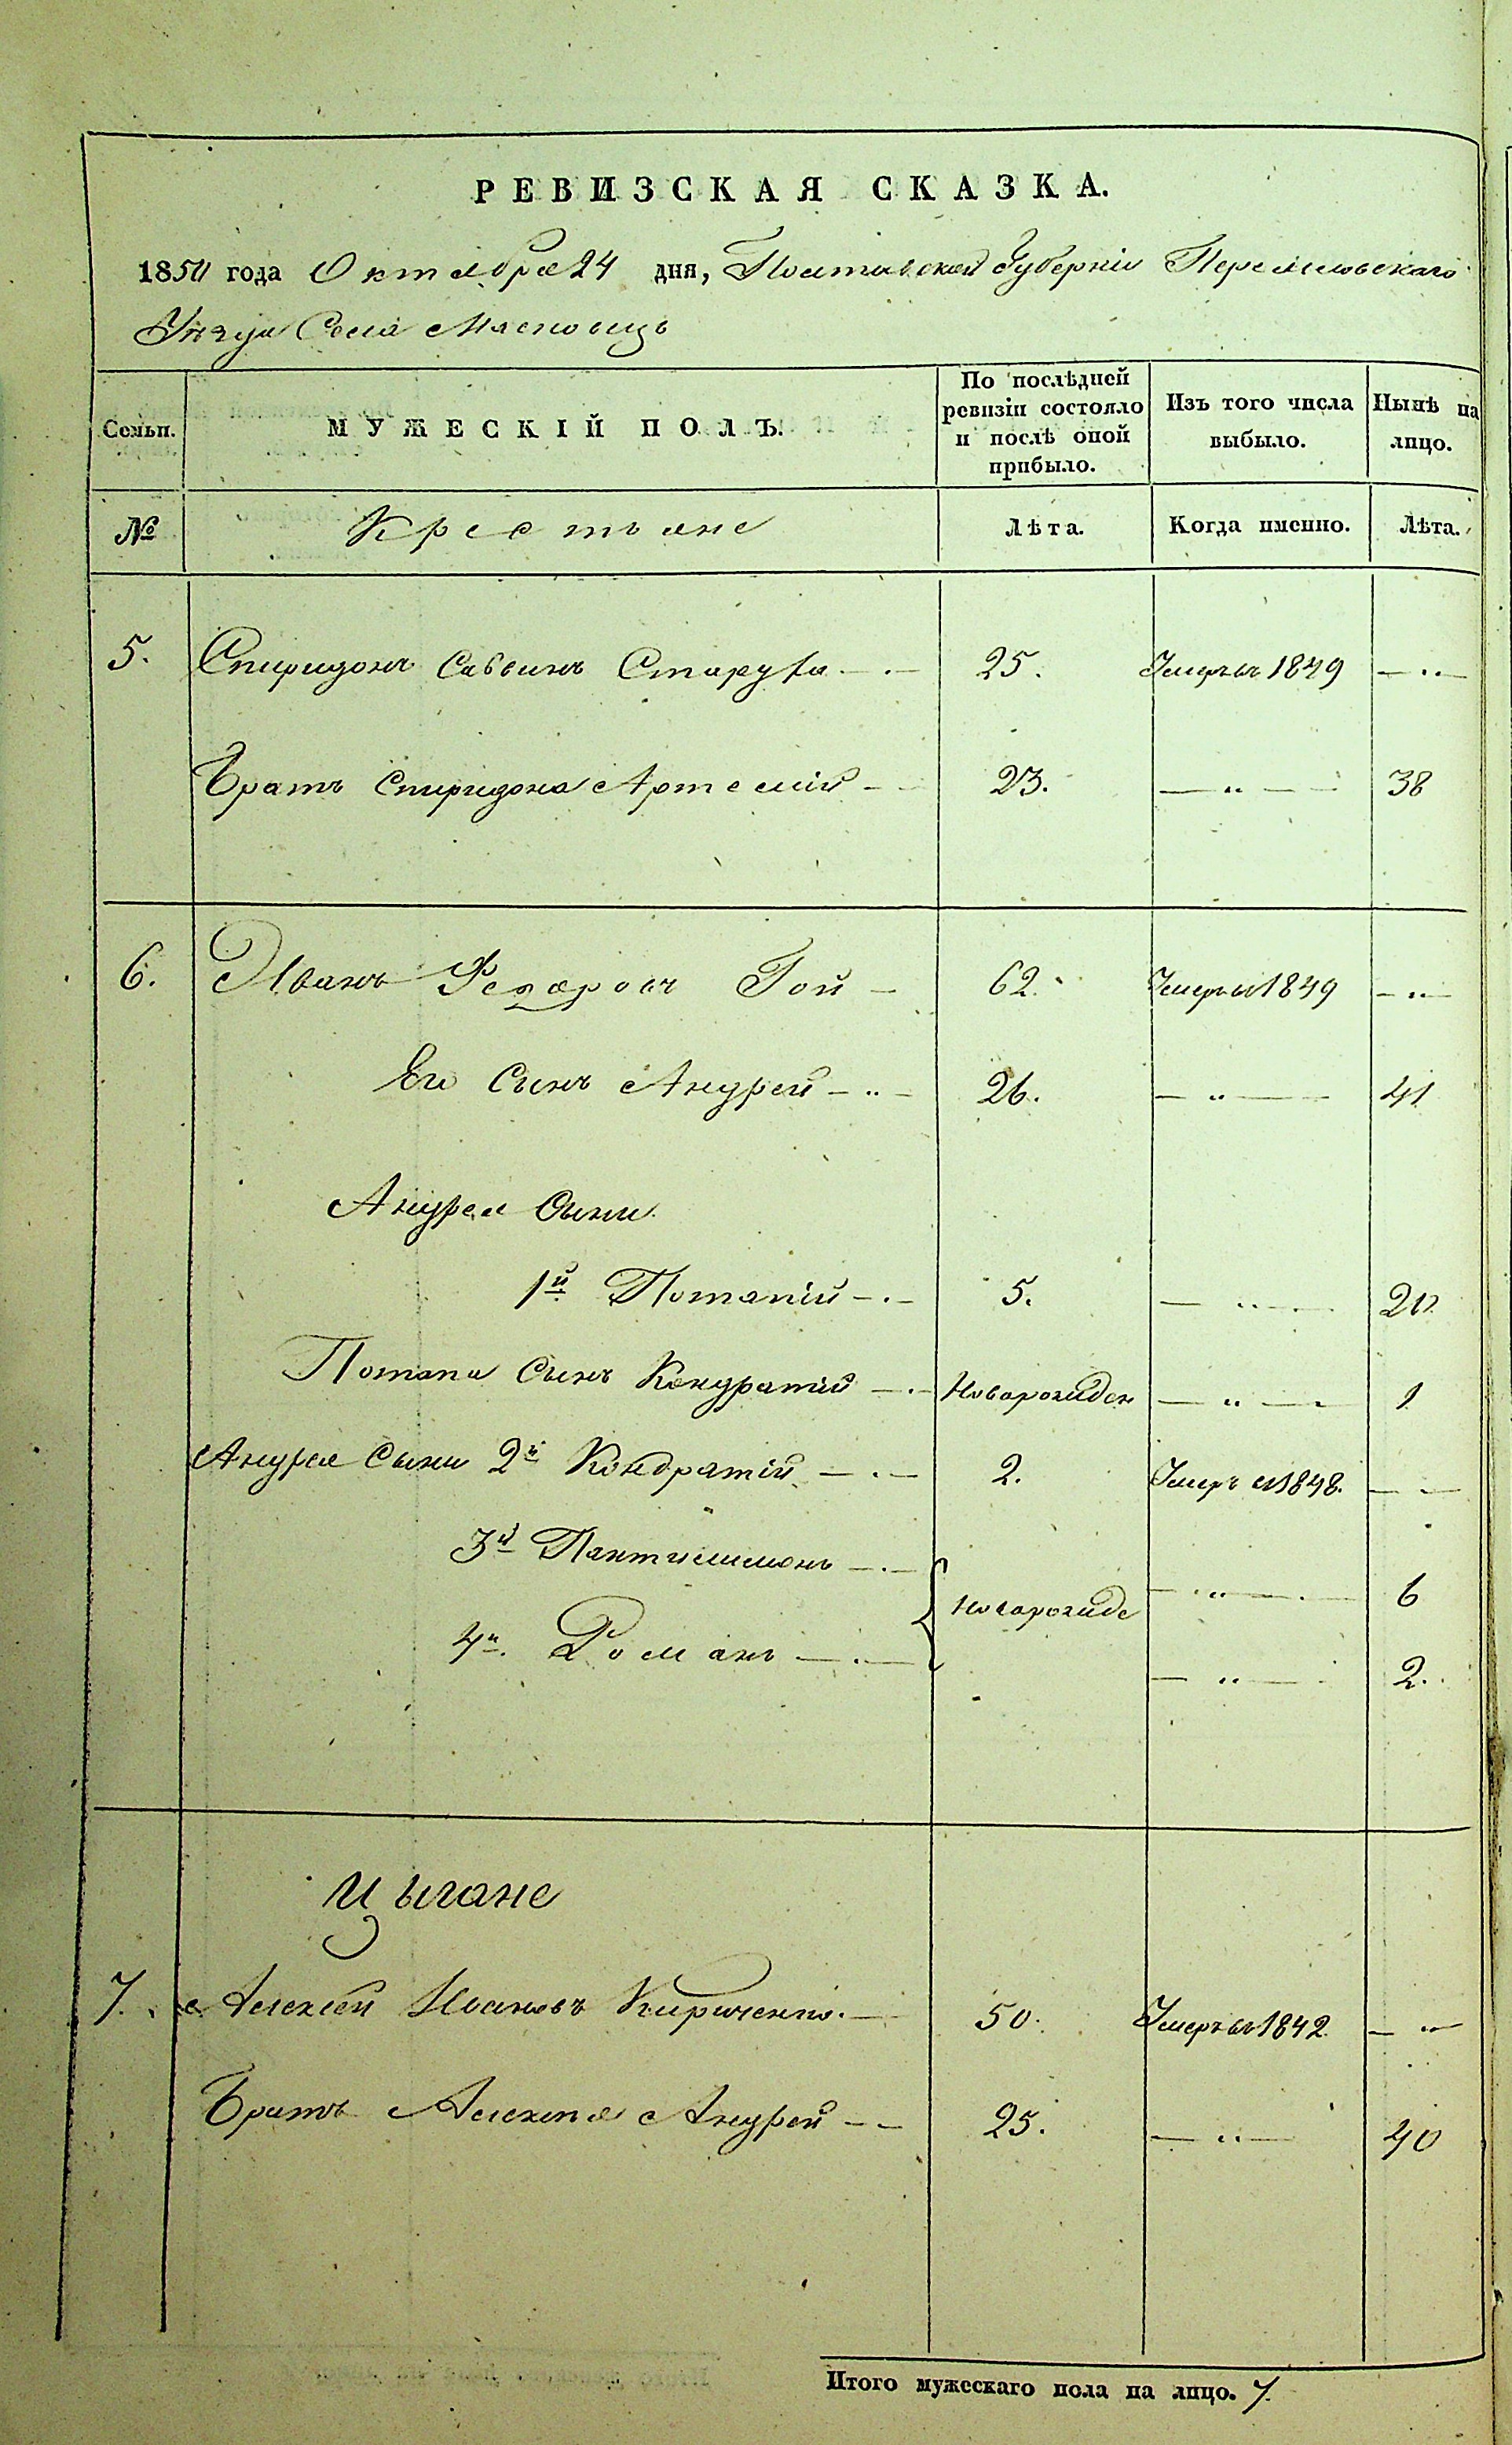 РЕВИЗСКАЯ СКАЗКА.
1850 года Октября 24 дня, Полтавской Губерніи Переяславскаго
Уѣзда Села Масковецъ
Семьи.
МУЖЕСКІЙ ПОЛЪ.
По послѣдней ревизіи состояло и послѣ оной прибыло.
Изъ того числа выбыло.
Нынѣ на лицо.
№ Крестьяне Лѣта. Когда именно. Лѣта.
5. Спиридонъ Саввинъ Старуха 25. Умеръ въ 1849 — „ —
Братъ Спиридона Артемій — 23. — „ — 38
6. Иванъ Федоровъ Гой — 62. Умеръ въ 1849 — „ —
Его Сынъ Андрей — „ — 26. — „ — 41
Андрея Сыны
1й Потапій — 5. — „ — 20
Потапа Сынъ Кондратій — Новорожден — „ — 1
Андрея Сыны 2й Кондратій — 2. Умеръ въ 1848. — —
3й Пантилимонъ — Новорожде — „ — 6
4й. Романъ — — „ — 2.
Цыгане
7. Алексей Ивановъ Кириченко. — 50. Умеръ въ 1842 — „ —
Братъ Алексея Андрей — 25. — „ — 40
Итого мужескаго пола на лицо. 7.